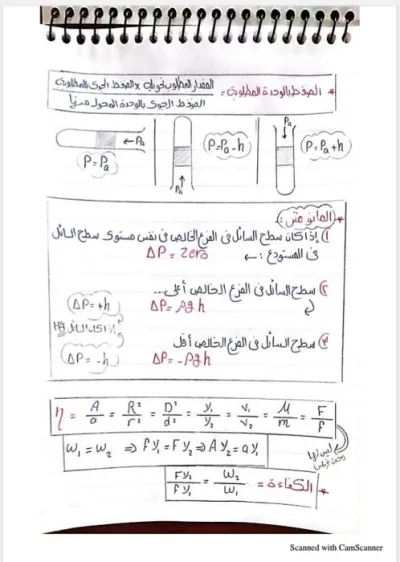 * الضغط بالوحدة المطلوبة = المقدار المطلوب تحويله × الضغط الجوى بالمطلوبة
الضغط الجوى بالوحدة المحول منها
Pa
P = Pa
P = Pa - h
Pa
Pa
P = Pa + h
* المانومتر :
١) إذا كان سطح السائل فى الفرع الخالص فى نفس مستوى سطح السائل
فى المستودع : ΔP = Zero
٢) سطح السائل فى الفرع الخالص أعلى...
ΔP = ρgh
ΔP = +h
إذا كان السائل Hg
٣) سطح السائل فى الفرع الخالص أقل
ΔP = -ρgh
ΔP = -h
η = A/a = R²/r² = D²/d² = y₁/y₂ = v₁/v₂ = M/m = F/f
W₁ = W₂ ⇒ f y₁ = F y₂ ⇒ A y₂ = a y₁
ليس لها
* الكفاءة = F y₂ / f y₁ = W₂ / W₁
Scanned with CamScanner